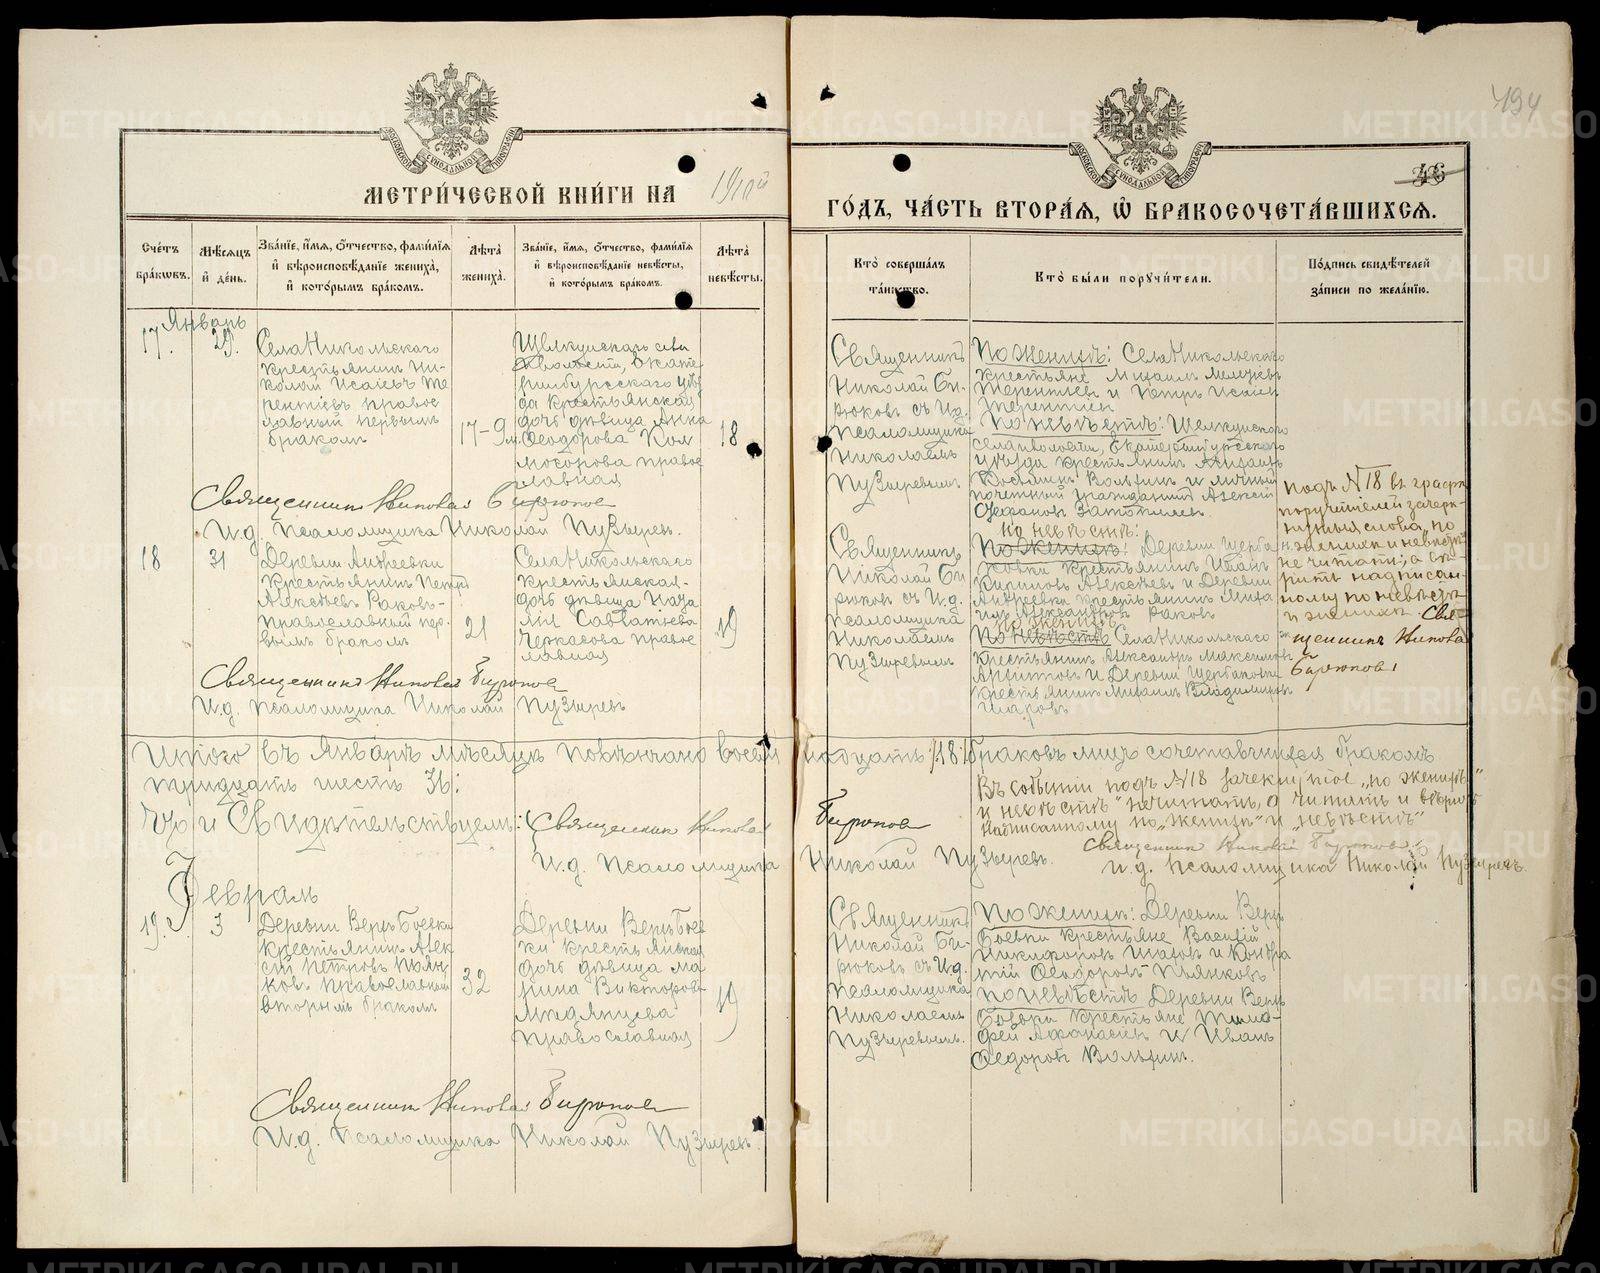 МЕТРИ́ЧЕСКОЙ КНИ́ГИ НА
ГО́ДЪ, ЧА́СТЬ ВТОРА́Я, Ѡ БРАКОСОЧЕТА́ВШИХСЯ.
46
Сче́тъ бра́ковъ.
Мѣ́сяцъ и́ де́нь.
Зва́нїе, и́мя, о́тчество, фами́лїя и́ вѣроисповѣ́данїе жениха̀, и́ кото́рымъ бра́комъ.
Лѣ́та жениха̀.
Зва́нїе, и́мя, о́тчество, фами́лїя и́ вѣроисповѣ́данїе невѣ́сты, и́ кото́рымъ бра́комъ.
Лѣ́та невѣ́сты.
Кто̀ соверша́лъ та́инство.
Кто̀ бы́ли поручи́тели.
По́дпись свидѣ́телей за́писи по жела́нїю.
Январь
17.
29.
Села Никольскаго
крестьянинъ Ни-
колай Исаевъ Те
рентіевъ право
славный первымъ
бракомъ
17-9 м.
Щелкунскаго села
волости, Екате
ринбургскаго уѣз
да крестьянская
дочь дѣвица Анна
Ѳеодорова Кол
могорова право
славная
18
Священникъ
Николай Би-
рюковъ съ И.д.
псаломщика
Николаемъ
Пузыревымъ
По женихѣ: Села Никольскаго
крестьяне Михаилъ
Терентіевъ и Петръ Исаевъ
Терентіевъ
По невѣстѣ: Щелкунскаго
села и волости, Екатеринбургскаго
уѣзда крестьянинъ Михаилъ
и личный
почетный гражданинъ Алексѣй
Священникъ Николай Бирюковъ
И.д. Псаломщика Николай Пузыревъ.
18
31
Деревни Андреевки
крестьянинъ Петръ
Алексѣевъ Раковъ
православный пер
вымъ бракомъ
21
Села Никольскаго
крестьянская
дочь дѣвица Ната
лія Савватіева
Черкасова право
славная
19
Священникъ
Николай Би
рюковъ съ И.д.
псаломщика
Николаемъ
Пузыревымъ
По невѣстѣ:
По женихѣ: Деревни Щерба
ковки крестьянинъ Иванъ
Кириловъ Алексѣевъ и Деревни
Андреевки крестьянинъ Миха
илъ Александровъ Раковъ
По женихѣ
По невѣстѣ Села Никольскаго
крестьянинъ Александръ Максимовъ
и Деревни Щербаковки
крестьянинъ Михаилъ Владиміровъ
Шаровъ
подъ №18 въ графѣ
поручителей зачерк-
нутыя слова „по
женихѣ и невѣстѣ"
не читать, а вѣ-
рить надписан-
ному по невѣстѣ
и женихѣ. Свя-
щенникъ Николай
Бирюковъ
Священникъ Николай Бирюковъ
И.д. Псаломщика Николай Пузыревъ
Итого въ Январѣ мѣсяцѣ повѣнчано восемнадцать /18/ браковъ лицъ сочетавшихся бракомъ
тридцать шесть 36:
Въ событіи подъ №18 зачеркнутое „по женихѣ"
и невѣстѣ" не читать, а читать и вѣрить
надписанному по „женихѣ" и „невѣстѣ"
Что и Свидѣтельствуемъ: Священникъ Николай Бирюковъ
И.д. Псаломщика Николай Пузыревъ.
Священникъ Николай Бирюковъ
И.д. Псаломщика Николай Пузыревъ.
Февраль
19.
3
Деревни Верхъ Боевки
крестьянинъ Алек
сѣй Петровъ Пьян
ковъ православный
вторымъ бракомъ
32
Деревни Верхъ Боев
ки крестьянская
дочь дѣвица Ма
рина Викторова
православная
19
Священникъ
Николай Би-
рюковъ съ И.д.
псаломщика
Николаемъ
Пузыревымъ.
По женихѣ: Деревни Верхъ
Боевки крестьяне Василій
Никифоровъ и Кондра
тій Ѳеодоровъ Пьянковъ
По невѣстѣ Деревни Верхъ
Боевки крестьяне Тимо-
фей Аѳанасьевъ и Иванъ
Ѳедоровъ
Священникъ Николай Бирюковъ
И.д. Псаломщика Николай Пузыревъ.
METRIKI.GASO-URAL.RU